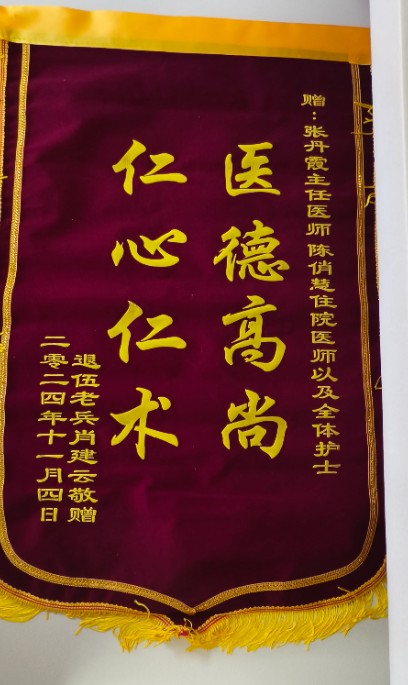 赠：张丹霞主任医师 陈俏慧住院医师以及全体护士
医德高尚
仁心仁术
退伍老兵肖建云敬赠
二零二四年十一月四日